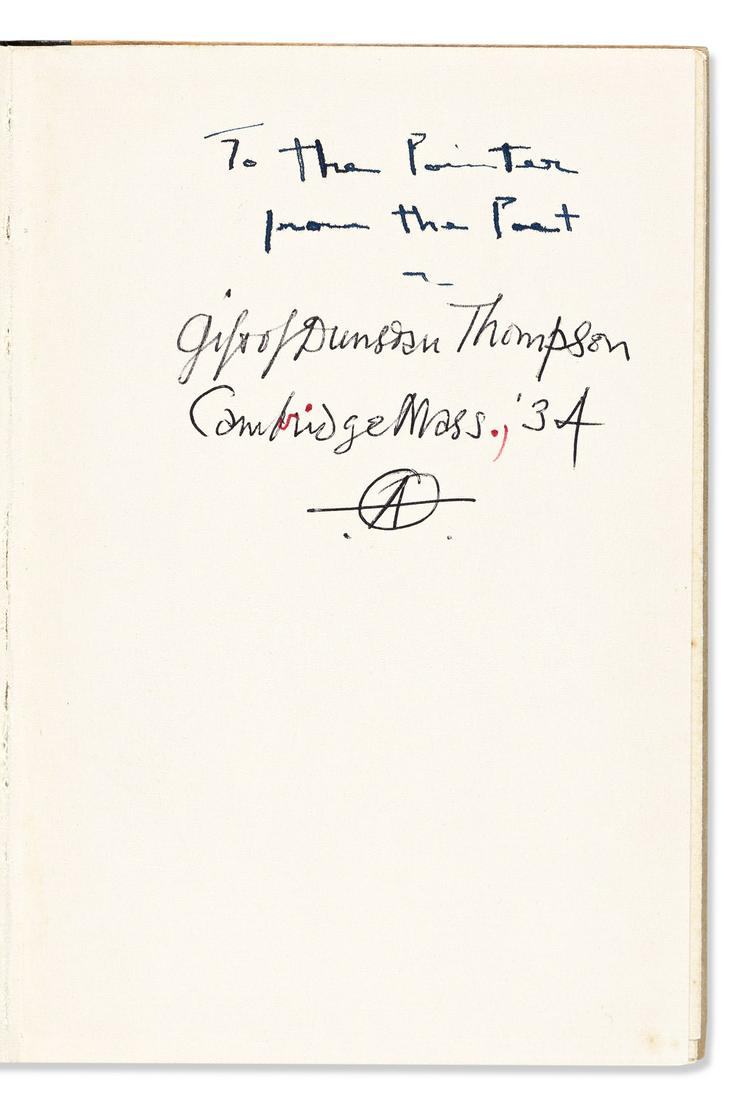 To the Painter
from the Poet
Gift of Dunstan Thompson
Cambridge Mass., '34